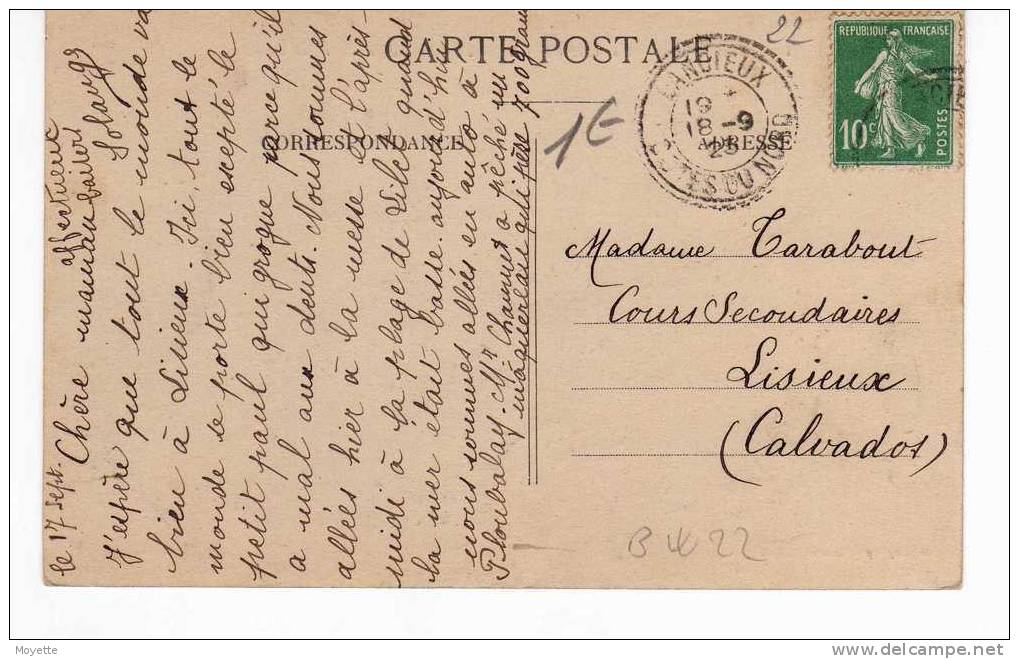 22
CARTE POSTALE
CORRESPONDANCE
ADRESSE
1€
LANCIEUX
19
18 -9
25
CÔTES DU NORD
REPUBLIQUE FRANÇAISE
10c
POSTES
le 17 Sept.
Chère maman
J'espère que tout le monde va
bien à Lisieux. Ici, tout le
monde se porte bien excepté le
petit paul qui grogne parce qu'il
a mal aux dents. Nous sommes
allées hier à la messe et l'après-
midi à la plage de quand
la mer était basse. aujourd'hui
nous sommes allées en auto à
Ploubalay. Mr a pêché un
700 gram
affectueux
baiser
Solange
Madame Tarabout
Cours Secondaires
Lisieux
(Calvados)
22
Moyette
delcampe.net